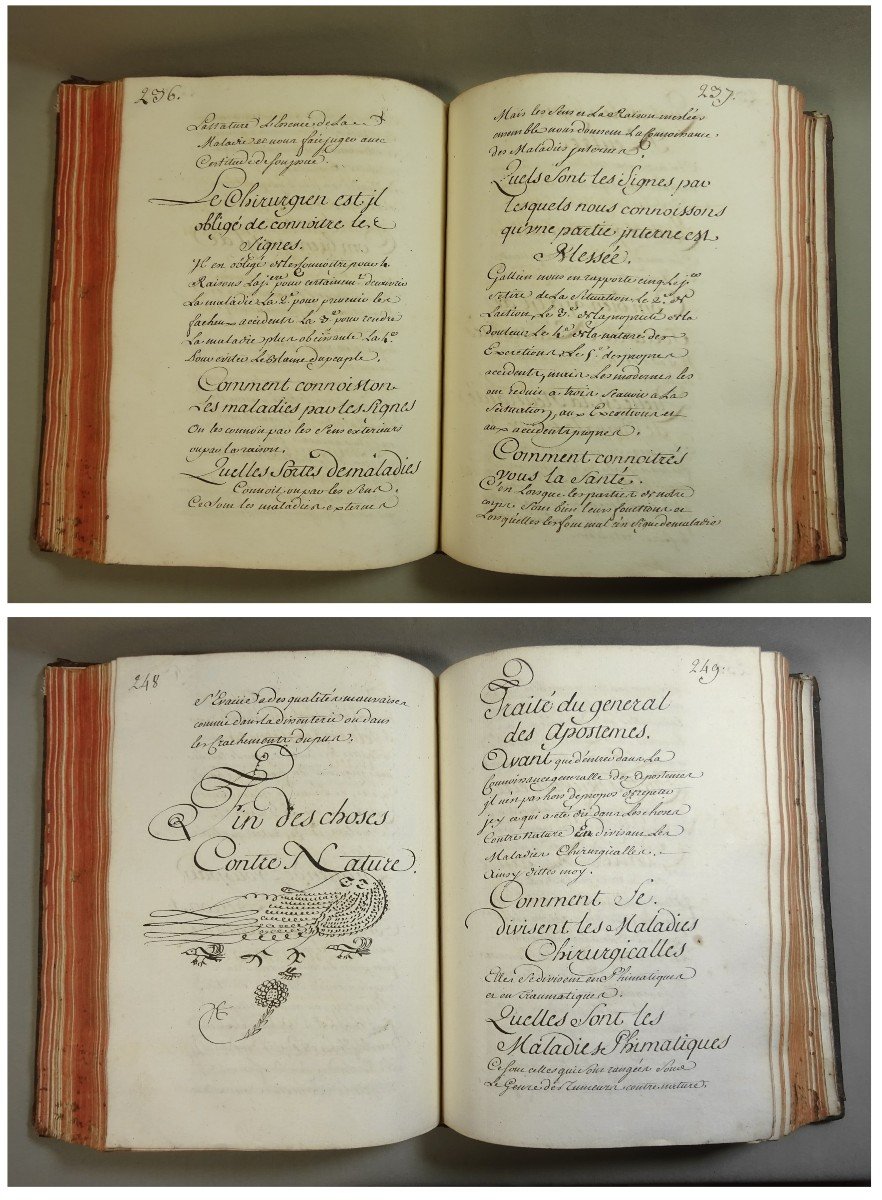 236.
La Nature Lessence de La
Maladie et nous fait juger avec
Certitude de son jssue.
Le Chirurgien est jl
obligé de connoitre les
Signes.
Jl est obligé de les connoitre pour 4
Raisons La pre. pour certainemt. decouvrir
La maladie La 2e. pour prevenir les
facheux accidents La 3e. pour rendre
La maladie plus obeissante La 4e.
Pour eviter Le Blame du peuple.
Comment connoiston
Les maladies par les Signes
On les connoit par les Sens exterieurs
ou par la raison.
Quelles Sortes de maladies
Connoit on par les Sens.
Ce sont les maladies externes
237.
Mais les Sens et La Raison meslées
ensemble nous donnent La Connoissance
des Maladies jnternes.
Quels Sont les Signes par
lesquels nous connoissons
qu'une partie interne est
Blessée.
Gallien nous en rapporte cinq Le pre
Se tire de La Situation Le 2e. de
Laction, Le 3e. de la proprieté de la
douleur Le 4e. de la nature des
Excretions, Le 5e. des propres
accidents, mais Les modernes les
ont reduit a trois Scavoir a La
Scituation, aux Excretions et
aux accidents propres.
Comment connoitrés
vous la Santé.
C'est Lorsque les parties de notre
corps font bien leurs fonctions et
Lorsquelles les font mal c'est Signe de maladie
248
S'Evacüe a des qualités mauvaises
comme dans la disenterie ou dans
les Crachements du pus.
Fin des choses
Contre Nature.
249.
Traité du general
des Apostemes.
Avant que d'entrer dans La
Connoissance generalle des apostemes
jl n'est pas hors de propos de repeter
jcy ce qui a eté dit dans Les choses
Contre Nature En divisant Les
Maladies Chirurgicalles.
Ainsy dittes moy.
Comment Se
divisent les Maladies
Chirurgicalles
Elles Se divisent en Phimatiques
et en Traumatiques.
Quelles Sont les
Maladies Phimatiques
Ce sont celles qui Sont rangées Sous
Le Genre des Tumeurs contre nature.